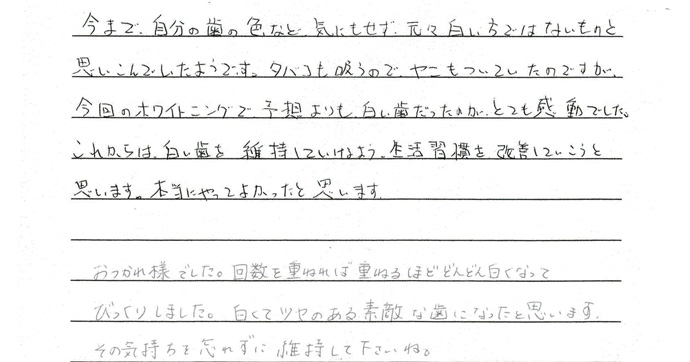 今まで、自分の歯の色など気にもせず、元々白い方ではないものと
思いこんでいたようです。タバコも吸うので、ヤニもついていたのですが、
今回のホワイトニングで予想よりも、白い歯だったのが、とても感動でした。
これからは、白い歯を維持していけるよう、生活習慣を改善していこうと
思います。本当にやってよかったと思います。
おつかれ様でした。回数を重ねれば重ねるほどどんどん白くなって
びっくりしました。白くてツヤのある素敵な歯になったと思います。
その気持ちを忘れずに維持して下さいね。